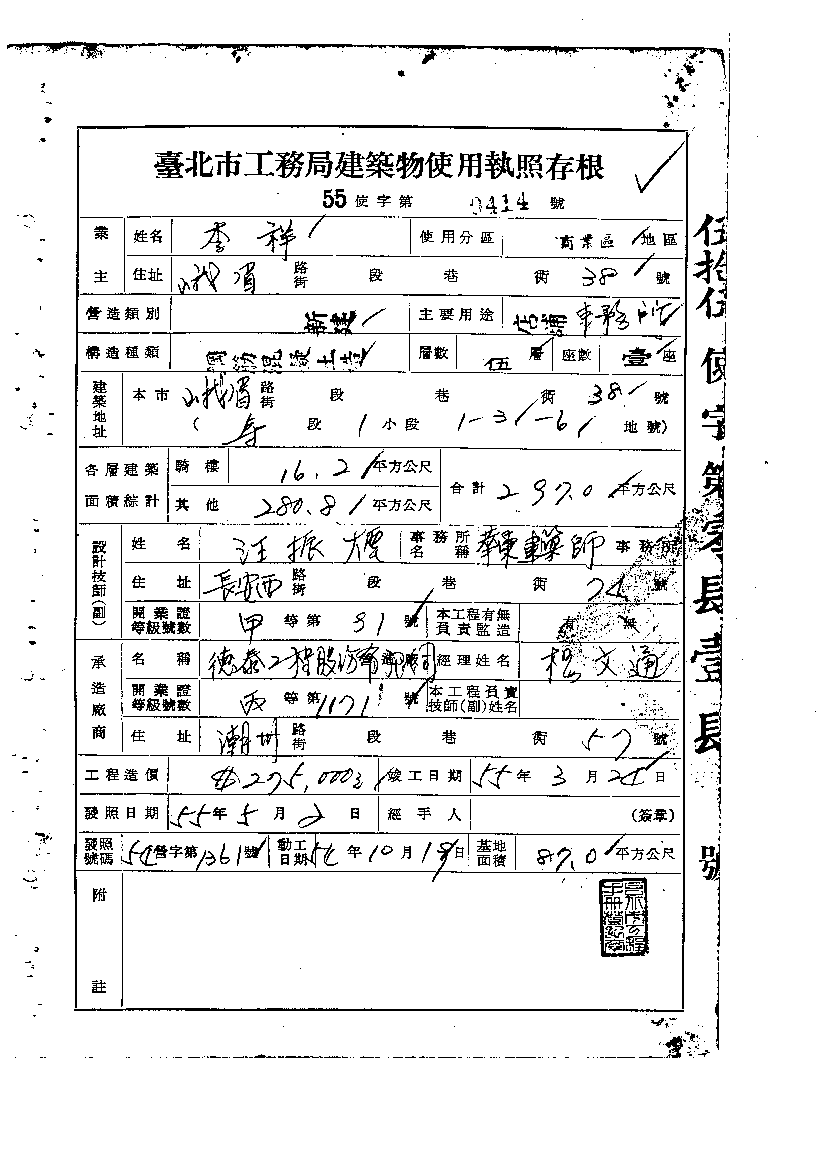 臺北市工務局建築物使用執照存根
55 使字第 0414 號
業主 姓名 李祥 使用分區 商業區 地區
住址 峨眉 路街 段 巷 衖 38 號
營造類別 新建 主要用途 店舖 事務所
構造種類 鋼筋混凝土造 層數 伍 層 座數 壹 座
建築地址 本市 峨眉 路街 段 巷 衖 38 號
( 段 1 小段 1-3 1-6 地號)
各層建築面積綜計 騎樓 16.2 平方公尺 合計 297.0 平方公尺
其他 280.8 平方公尺
設計技師(副) 姓名 汪振 事務所名稱 建築師 事務所
住址 長安西 路街 段 巷 衖 24 號
開業證等級號數 甲 等第 31 號 本工程有無負責監造 有 無
承造廠商 名稱 德泰工程股份有限公司 經理姓名 楊文通
開業證等級號數 丙 等第 1171 號 本工程負責技師(副)姓名
住址 潮州 路街 段 巷 衖 57 號
工程造價 275,000 竣工日期 55 年 3 月 24 日
發照日期 55 年 5 月 2 日 經手人 (簽章)
發照號碼 54 營字第 1361 號 動工日期 54 年 10 月 18 日 基地面積 87.0 平方公尺
附註
伍拾伍使字第零肆壹肆號